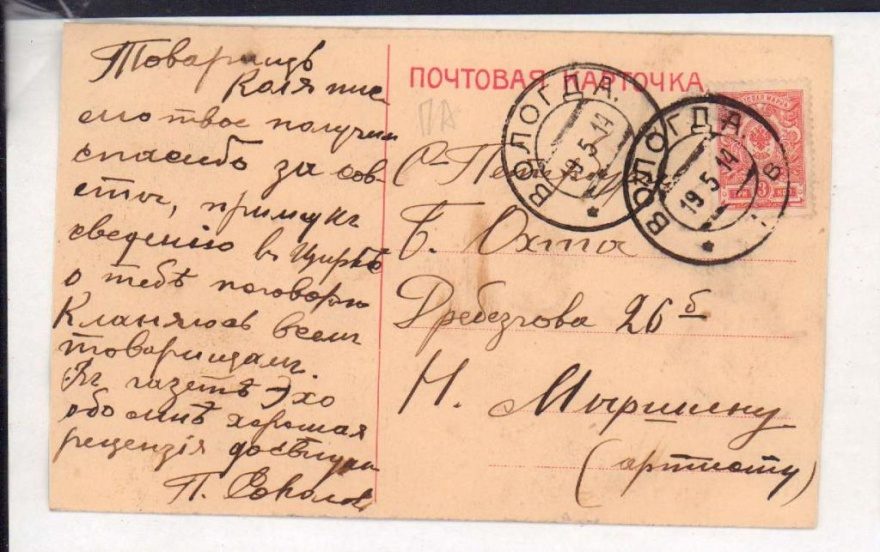 Товарищъ
Коля пис
ьмо твое получил
спасибо за сов
еты, приму къ
сведению въ Циркѣ
о тебѣ поговорю
Кланяюсь всем
товарищам.
Въ газетѣ Эхо
обо мнѣ хорошая
рецензія
П. Соколов
ПОЧТОВАЯ КАРТОЧКА
ПА
ВОЛОГДА.
19.5.14
ВОЛОГДА
19.5.14
С-Петерб
Б. Охта
26 б
Н.
(артисту)